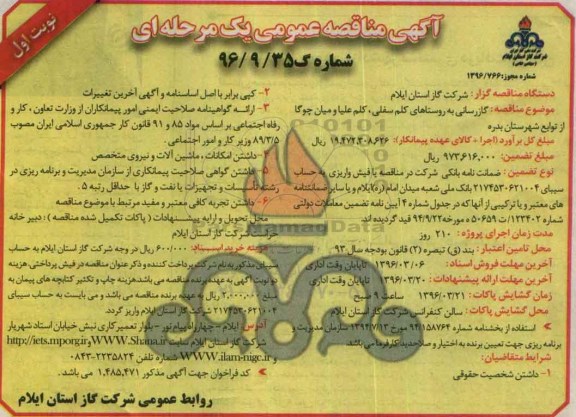 نوبت اول
آگهی مناقصه عمومی یک مرحله ای
شماره گ۹۶/۹/۳۵
شرکت گاز استان ایلام
شماره مجوز: ۱۳۹۶/۷۶۶
دستگاه مناقصه گزار: شرکت گاز استان ایلام
موضوع مناقصه: گازرسانی به روستاهای کلم سفلی، کلم علیا و میان چوگا
از توابع شهرستان بدره
مبلغ کل برآورد (اجرا + کالای عهده پیمانکار): ۱۹،۴۷۲،۳۰۸،۶۲۶ ریال
مبلغ تضمین: ۹۷۳،۶۱۶،۰۰۰ ریال
نوع تضمین: ضمانت نامه بانکی شرکت در مناقصه یا فیش واریزی به حساب
سیبای ۲۱۷۴۵۳۰۶۲۱۰۰۴ بانک ملی شعبه میدان امام (ره) ایلام و یا سایر ضمانتنامه
های معتبر و یا ترکیبی از آنها که در جدول شماره ۴ آیین نامه تضمین معاملات دولتی
شماره ۱۲۳۴۰۲/ت ۵۰۶۵۹ ه مورخ ۹۴/۹/۲۲ قید گردیده اند.
مدت زمان اجرای پروژه: ۲۱۰ روز
محل تامین اعتبار: بند (ق) تبصره (۲) قانون بودجه سال ۹۳
آخرین مهلت فروش اسناد: ۱۳۹۶/۰۳/۰۶ تا پایان وقت اداری
آخرین مهلت ارائه پیشنهادات: ۱۳۹۶/۰۳/۲۰ تا پایان وقت اداری
زمان گشایش پاکات: ۱۳۹۶/۰۳/۲۱ ساعت ۹ صبح
محل گشایش پاکات: سالن کنفرانس شرکت گاز استان ایلام
استفاده از بخشنامه شماره ۹۲/۱۵۸۷۶۴ مورخ ۱۳۹۲/۷/۱۳ سازمان مدیریت و
برنامه ریزی جهت تعیین برنده به اختیار و صلاحدید کارفرما می باشد
شرایط متقاضیان:
۱- داشتن شخصیت حقوقی
۲- کپی برابر با اصل اساسنامه و آگهی آخرین تغییرات
۳- ارائه گواهینامه صلاحیت ایمنی امور پیمانکاران از وزارت تعاون، کار و
رفاه اجتماعی بر اساس مواد ۸۵ و ۹۱ قانون کار جمهوری اسلامی ایران مصوب
۸۹/۳/۵ وزیر کار و امور اجتماعی.
داشتن امکانات، ماشین آلات و نیروی متخصص
۵- داشتن گواهی صلاحیت پیمانکاری از سازمان مدیریت و برنامه ریزی در
رشته تأسیسات و تجهیزات یا نفت و گاز با حداقل رتبه ۵.
۶- داشتن تجربه کافی معتبر و مفید مرتبط با موضوع مناقصه
محل تحویل و ارایه پیشنهادات (پاکات تکمیل شده مناقصه): دبیر خانه
شرکت گاز استان ایلام
هزینه خرید اسناد: ۶۰۰،۰۰۰ ریال در وجه شرکت گاز استان ایلام به حساب
سیبای مذکور به نام شرکت پرداخت کننده و ذکر عنوان مناقصه در فیش پرداختی. هزینه
دو نوبت آگهی به عهده برنده مناقصه می باشد. هزینه چاپ و تکثیر کتابچه های پیمان به
مبلغ ۲،۰۰۰،۰۰۰ ریال به عهده برنده مناقصه می باشد و می بایست به حساب سیبای
۲۱۷۴۵۳۰۶۲۱۰۰۴ شرکت گاز استان ایلام واریز گردد.
آدرس: ایلام - چهارراه پیام نور - بلوار تعمیرکاری نبش خیابان استاد شهریار
شرکت گاز استان ایلام سایت WWW.Shana.ir و http://iets.mporg.ir
و WWW.ilam-nigc.ir شماره تلفن ۲۲۳۵۸۲۴-۰۸۴۳
کد فراخوان جهت آگهی مذکور ۱،۴۸۵،۴۷۱ می باشد.
روابط عمومی شرکت گاز استان ایلام